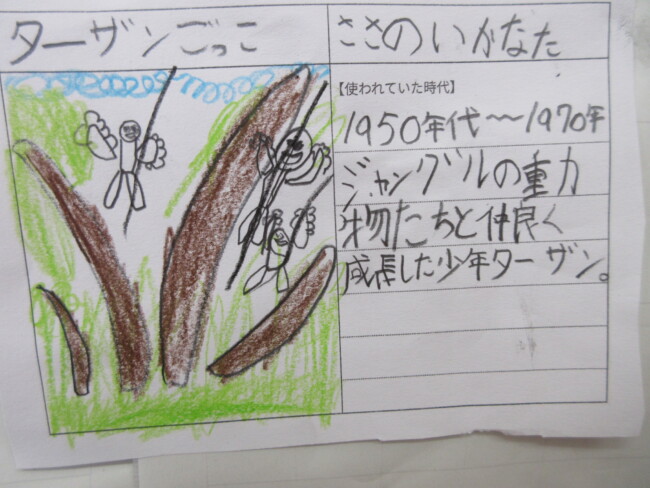 ターザンごっこ
ささのいかなた
【使われていた時代】
1950年代〜1970年
ジャングルの動
物たちと仲良く
成長した少年ターザン。